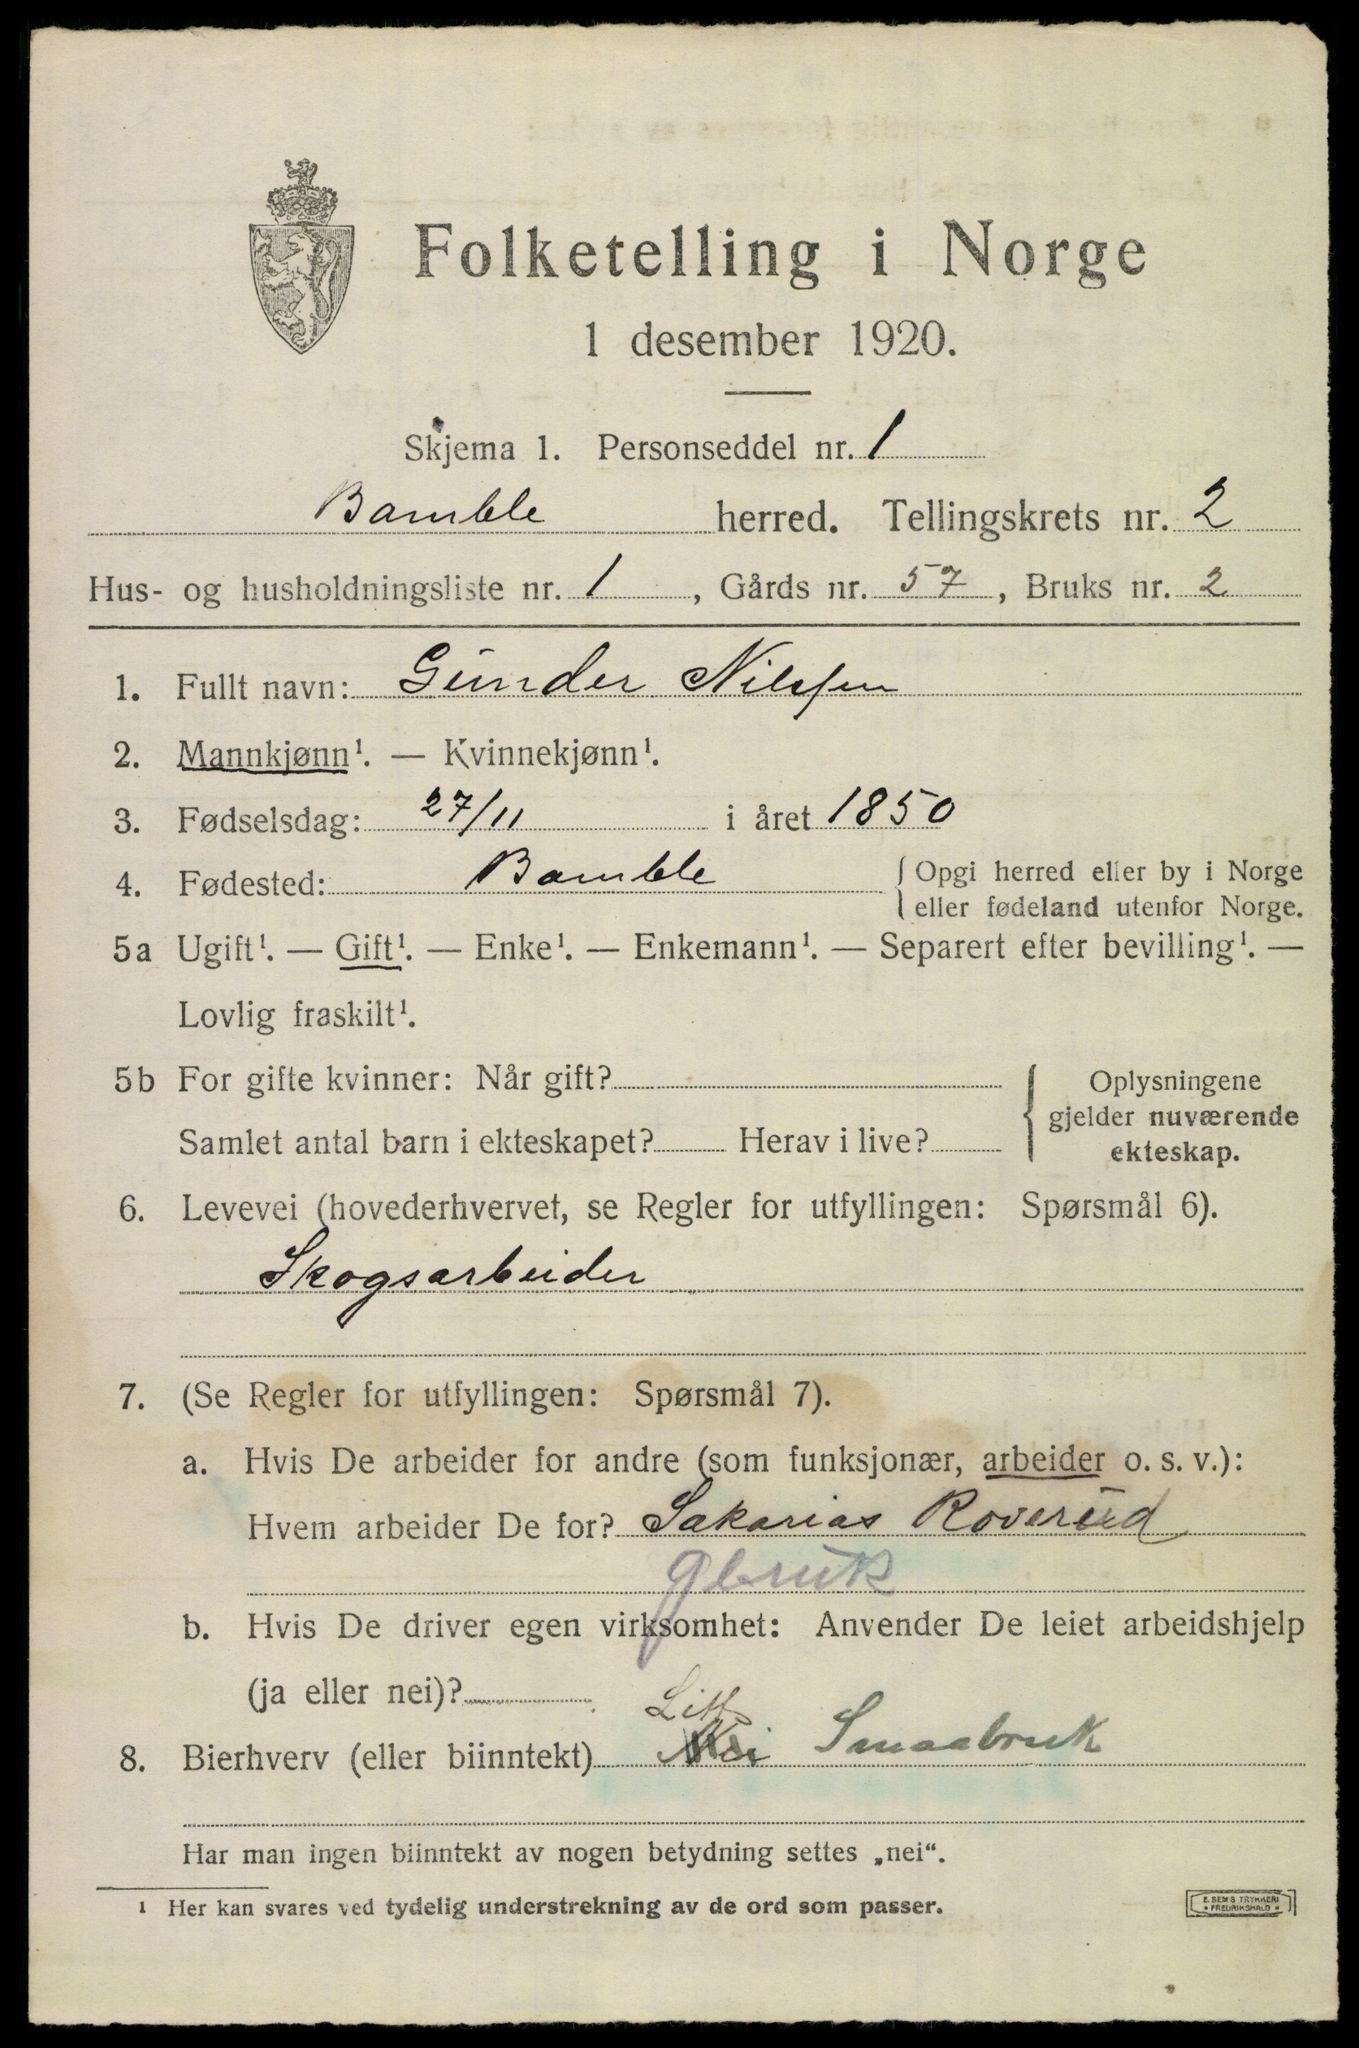 Folketelling i Norge
1 desember 1920.
Skjema 1. Personseddel nr. 1
Bamble herred. Tellingskrets nr. 2
Hus- og husholdningsliste nr. 1, Gårds nr. 57, Bruks nr. 2
1. Fullt navn: Gunder Nilssen
2. Mannkjønn¹. — Kvinnekjønn¹.
3. Fødselsdag: 27/11 i året 1850
4. Fødested: Bamble { Opgi herred eller by i Norge
eller fødeland utenfor Norge.
5a Ugift¹. — Gift¹. — Enke¹. — Enkemann¹. — Separert efter bevilling¹. —
Lovlig fraskilt¹.
5b For gifte kvinner: Når gift? { Oplysningene
gjelder nuværende
Samlet antal barn i ekteskapet? Herav i live? ekteskap.
6. Levevei (hovederhvervet, se Regler for utfyllingen: Spørsmål 6).
Skogsarbeider
7. (Se Regler for utfyllingen: Spørsmål 7).
a. Hvis De arbeider for andre (som funksjonær, arbeider o. s. v.):
Hvem arbeider De for? Sakarias Roverud
gbruk
b. Hvis De driver egen virksomhet: Anvender De leiet arbeidshjelp
(ja eller nei)?
Litt
8. Bierhverv (eller biinntekt) Nei Smaabruk
Har man ingen biinntekt av nogen betydning settes „nei“.
¹ Her kan svares ved tydelig understrekning av de ord som passer.
E. SEM'S TRYKKERI
FREDRIKSHALD